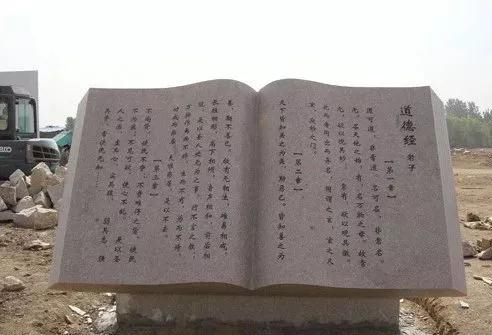 道德经 老子
【第一章】
道可道，非常道。名可名，非常名。
无，名天地之始；有，名万物之母。故常
无，欲以观其妙；常有，欲以观其徼。
此两者，同出而异名，同谓之玄。玄之又
玄，众妙之门。
【第二章】
天下皆知美之为美，斯恶已。皆知善之为
善，斯不善已。故有无相生，难易相成，
长短相形，高下相倾，音声相和，前后相
随。是以圣人处无为之事，行不言之教；
万物作焉而不辞，生而不有，为而不恃，
功成而弗居。夫唯弗居，是以不去。
【第三章】
不尚贤，使民不争；不贵难得之货，使民
不为盗；不见可欲，使心不乱。是以圣
人之治，虚其心，实其腹，弱其志，强
其骨。常使民无知